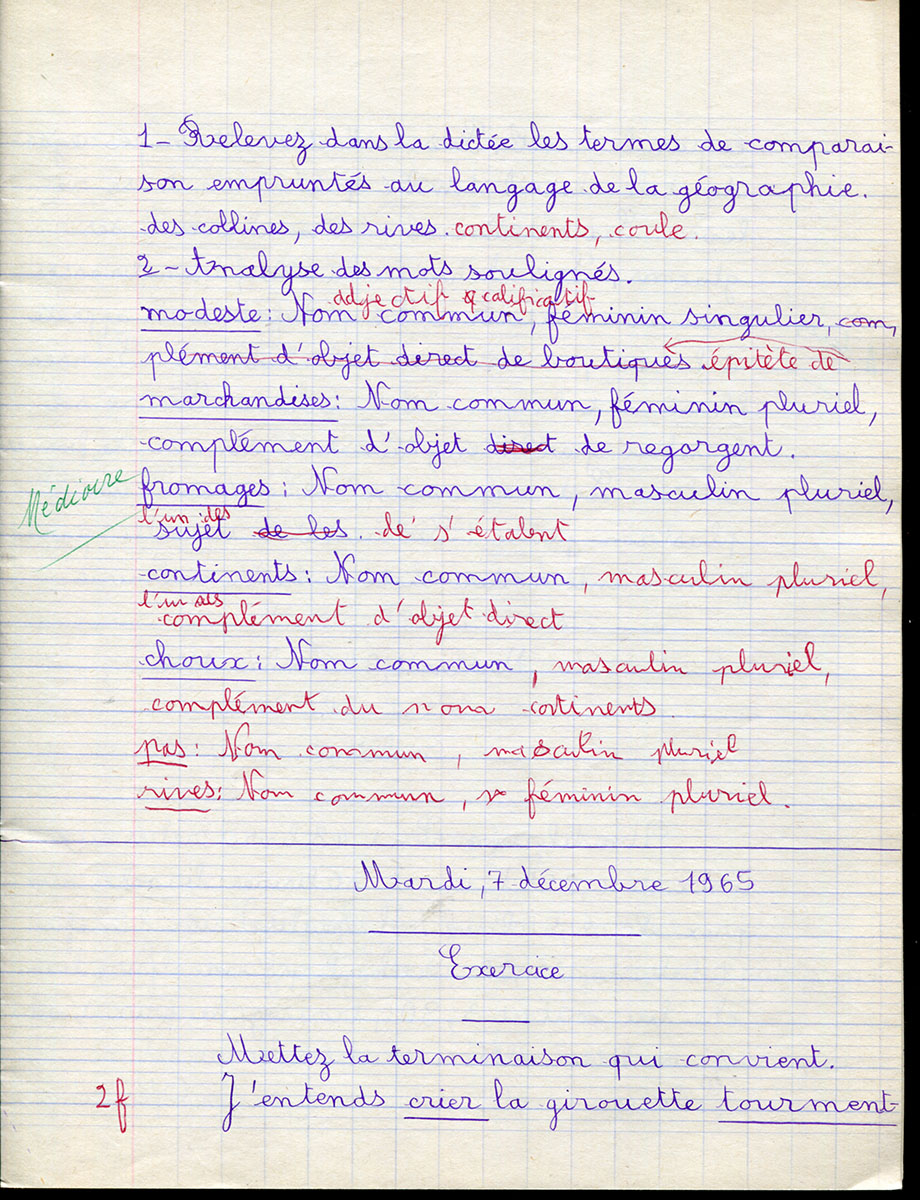 1 - Relevez dans la dictée les termes de comparai-
son empruntés au langage de la géographie.
des collines, des rives. continents, coule.
2 - Analyse des mots soulignés.
adjectif qualificatif
modeste : Nom commun, féminin singulier, com,
plément d'objet direct de boutiques épitète de
marchandises : Nom commun, féminin pluriel,
complément d'objet direct de regorgent.
Médiocre
fromages : Nom commun, masculin pluriel,
l'un des
sujet de les. de s'étalent
continents : Nom commun, masculin pluriel,
l'un des
complément d'objet direct
choux : Nom commun, masculin pluriel,
complément du nom continents
pas : Nom commun, masculin pluriel
rives : Nom commun, féminin pluriel.
Mardi, 7 décembre 1965
Exercice
Mettez la terminaison qui convient.
2f J'entends crier la girouette tourment-